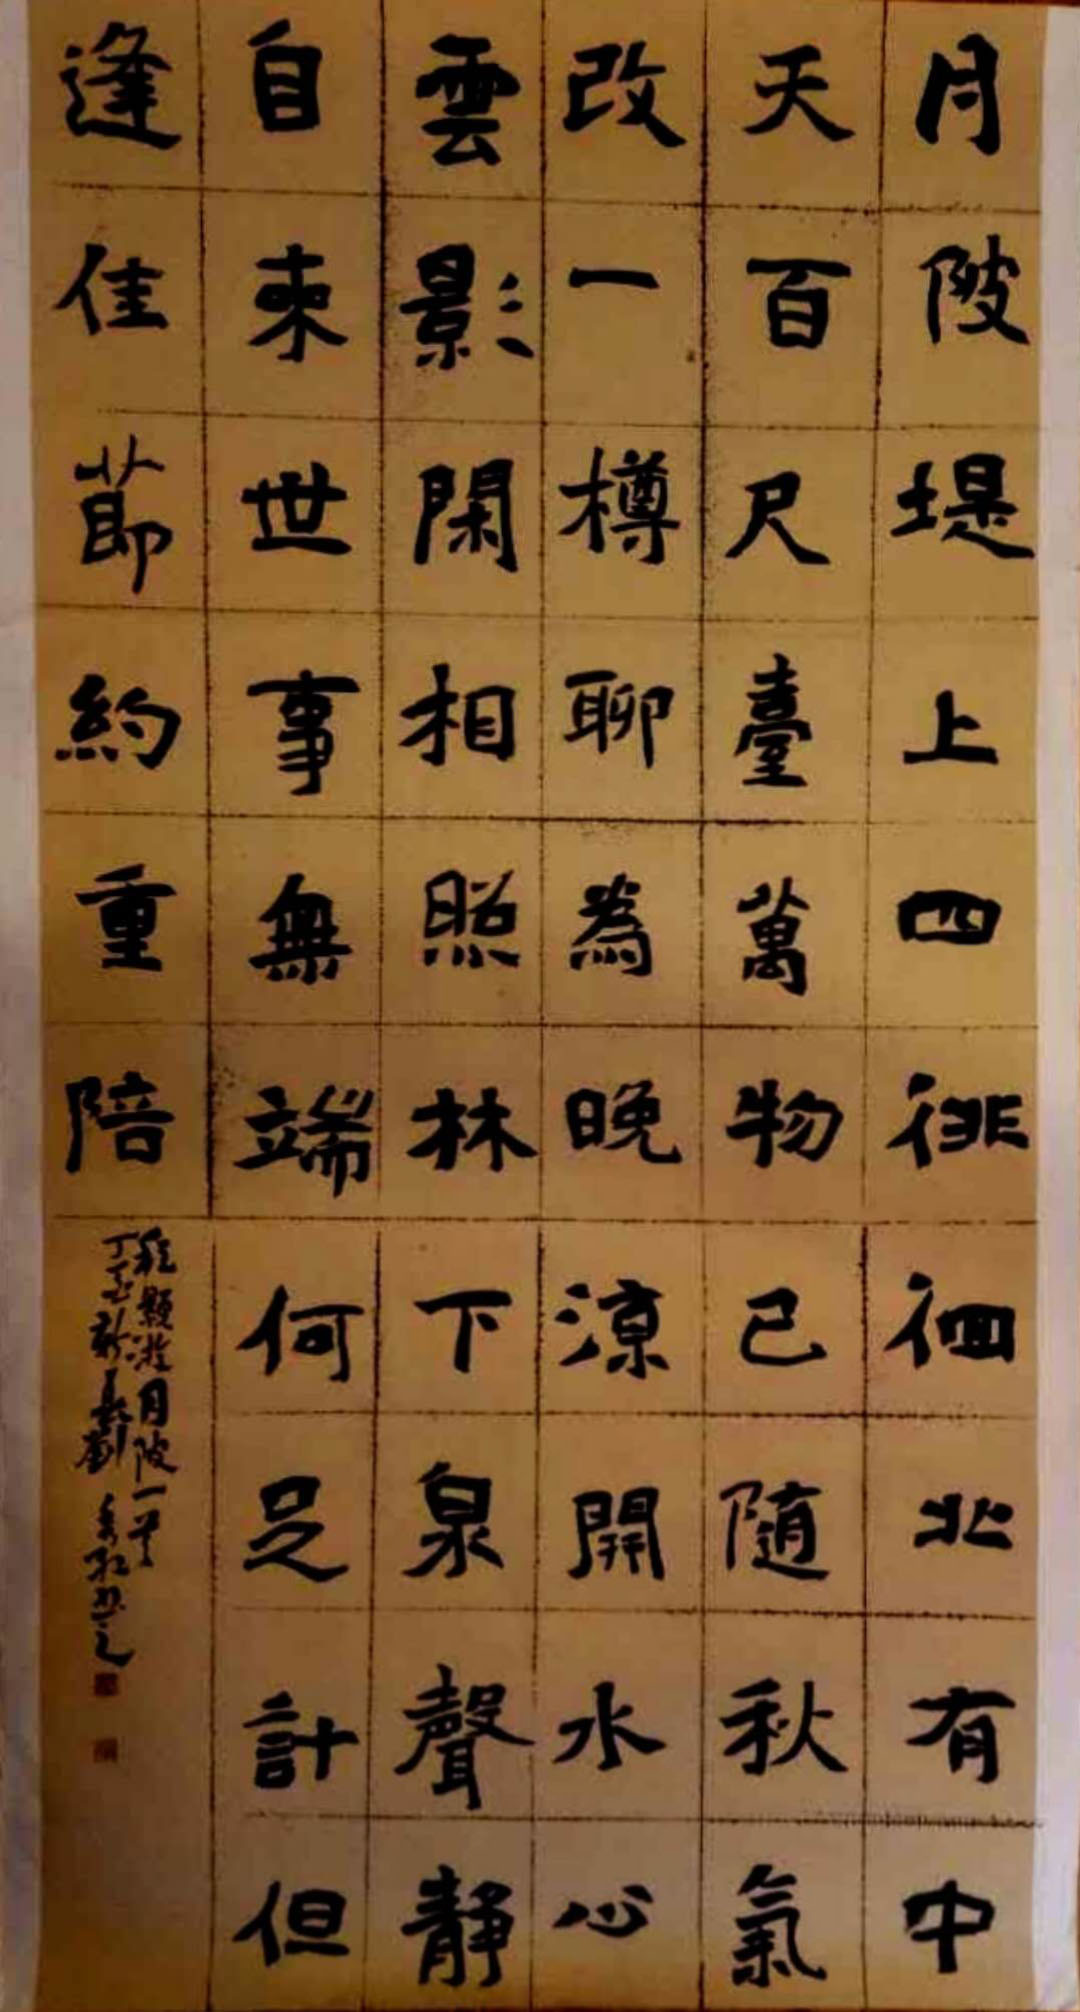 月陂堤上四徘徊北有中
天百尺臺萬物已随秋氣
改一樽聊為晚涼開水心
雲影閑相照林下泉聲静
自来世事無端何足計但
逢佳節約重陪
程顥游月陂一首